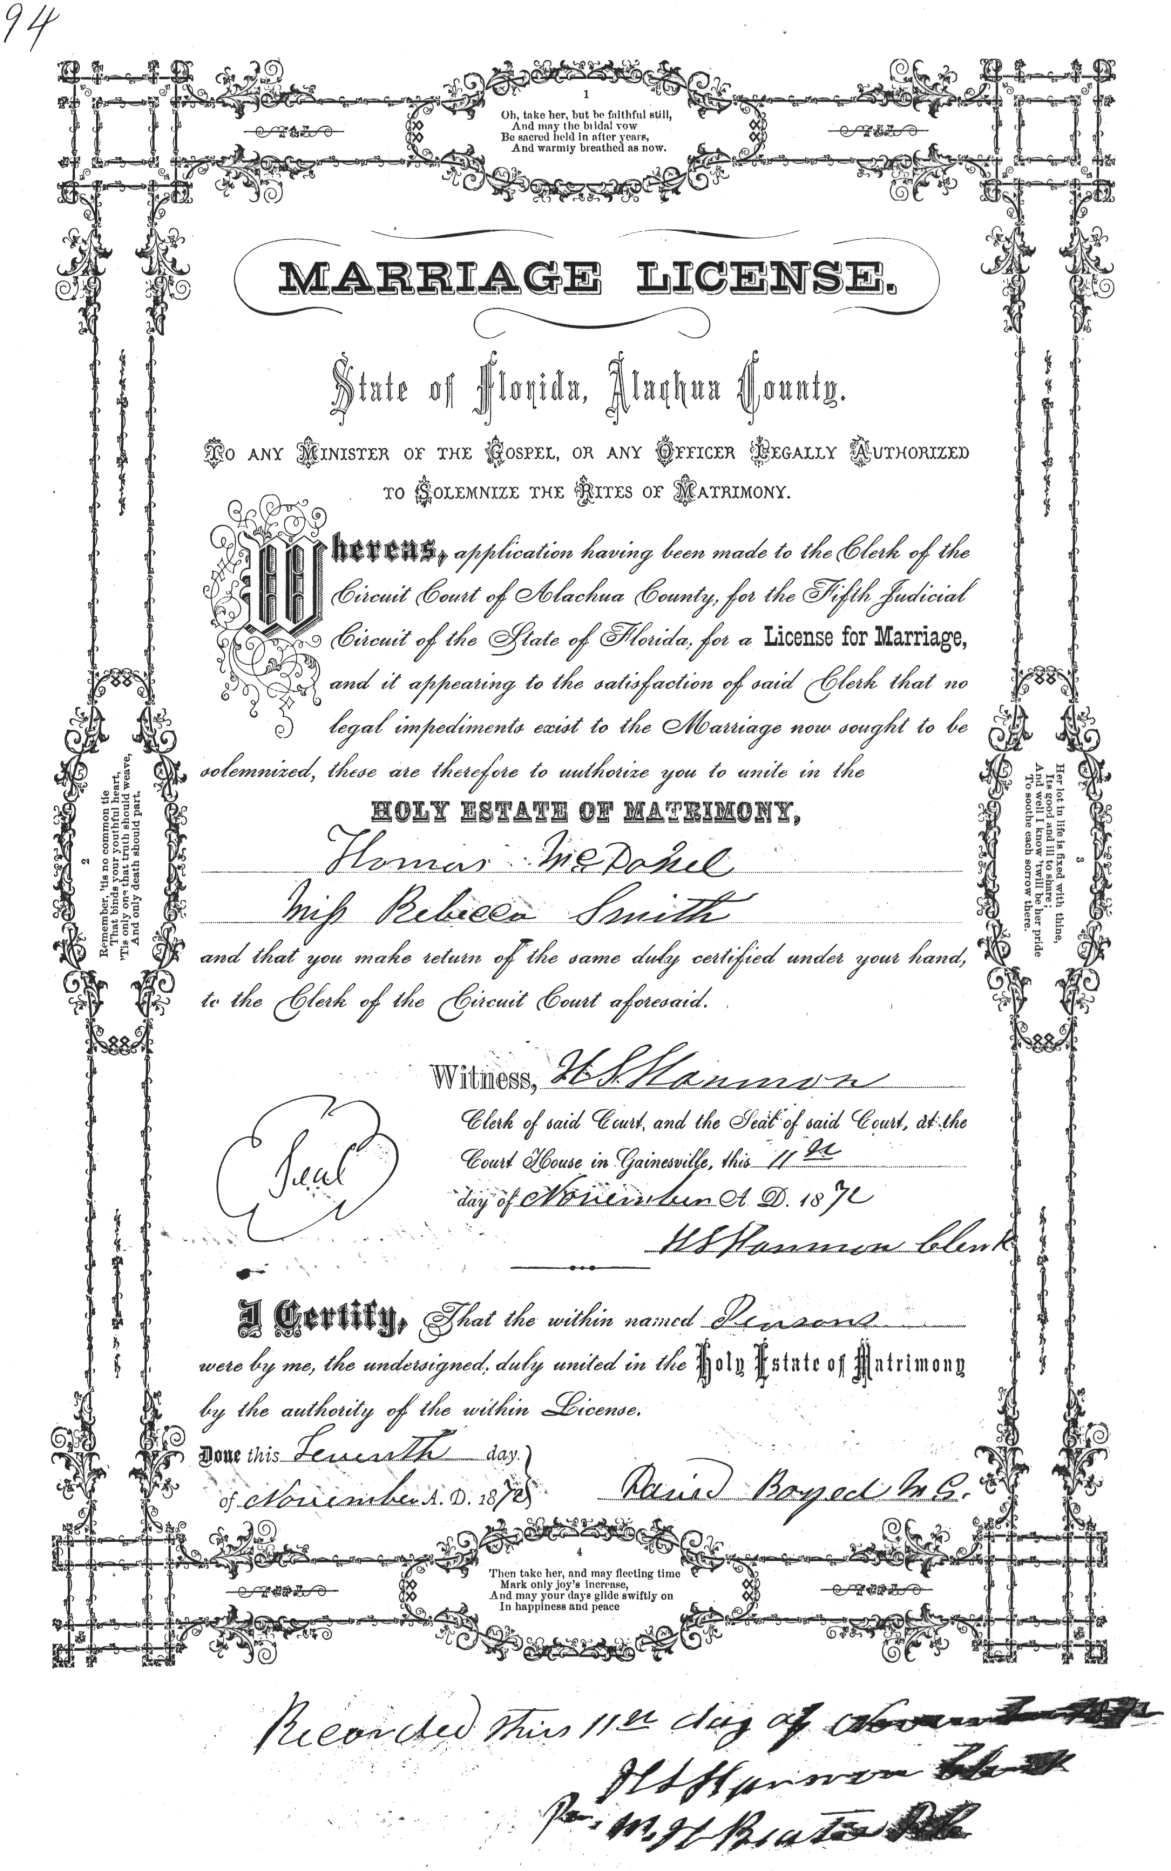 94
1
Oh, take her, but be faithful still,
And may the bridal vow
Be sacred held in after years,
And warmly breathed as now.
MARRIAGE LICENSE.
State of Florida, Alachua County.
TO ANY MINISTER OF THE GOSPEL, OR ANY OFFICER LEGALLY AUTHORIZED
TO SOLEMNIZE THE RITES OF MATRIMONY.
Whereas, application having been made to the Clerk of the
Circuit Court of Alachua County, for the Fifth Judicial
Circuit of the State of Florida, for a License for Marriage,
and it appearing to the satisfaction of said Clerk that no
legal impediments exist to the Marriage now sought to be
solemnized, these are therefore to authorize you to unite in the
HOLY ESTATE OF MATRIMONY,
Thomas
Miss Rebecca Smith
and that you make return of the same duly certified under your hand,
to the Clerk of the Circuit Court aforesaid.
2
Remember, 'tis no common tie
That binds your youthful heart,
'Tis only one that truth should weave,
And only death should part.
3
Her lot in life is fixed with thine,
Its good and ill to share;
And well I know 'twill be her pride
To soothe each sorrow there.
Witness, H S Harmon
Clerk of said Court, and the Seal of said Court, at the
Court House in Gainesville, this 11th
day of November A. D. 1872
Seal
H S Harmon Clerk
I Certify, That the within named Persons
were by me, the undersigned, duly united in the Holy Estate of Matrimony
by the authority of the within License.
Done this Seventh day
of November A. D. 1872
David Boyed M G.
4
Then take her, and may fleeting time
Mark only joy's increase,
And may your days glide swiftly on
In happiness and peace
Recorded this 11th day of November 1872
H S Harmon Clerk
Per